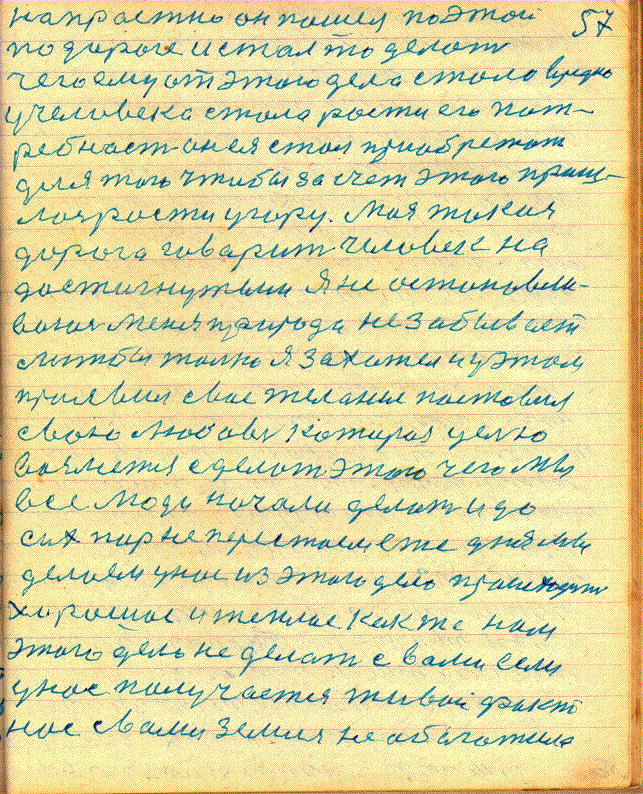 напрастно он пошел по этой 57
по дороге и стал то делат
чего ему от этого дела стало вредно
у человека стала рости его пот-
ребност он ея стал приобретат
для того чтобы за счет этого
рости у гору. Моя такая
дорога говорит человек на
достигнутым я не остановли-
ваюя меня природа не забывает
я захотел и у этом
свае желание поставил
сваю любовь которая целю
сделат этого чего мы
все люди начали делат и до
сих пор не перестаем еже дня мы
делаем у нас из этого дело происходит
хорошое и теплое как же нам
этого дело не делат с вами если
у нас получается живой факт
нас с вами земля не обагатила